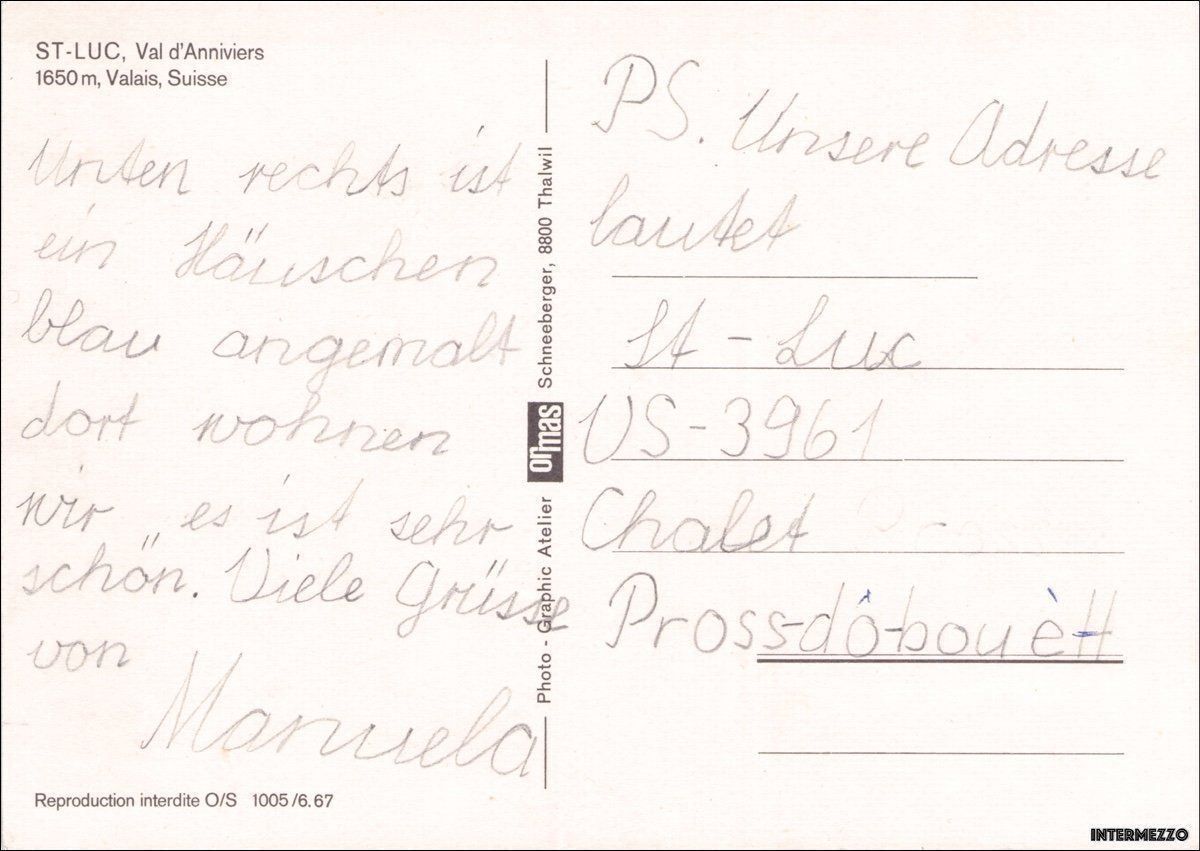 ST-LUC, Val d'Anniviers
1650 m, Valais, Suisse
Unten rechts ist
ein Häuschen
blau angemalt
dort wohnen
wir, es ist sehr
schön. Viele Grüsse
von
Manuela
Reproduction interdite O/S 1005/6.67
Photo - Graphic Atelier ormas Schneeberger, 8800 Thalwil
PS. Unsere Adresse
lautet
St - Luc
VS - 3961
Chalet
Pross-dô-bouètt
INTERMEZZO